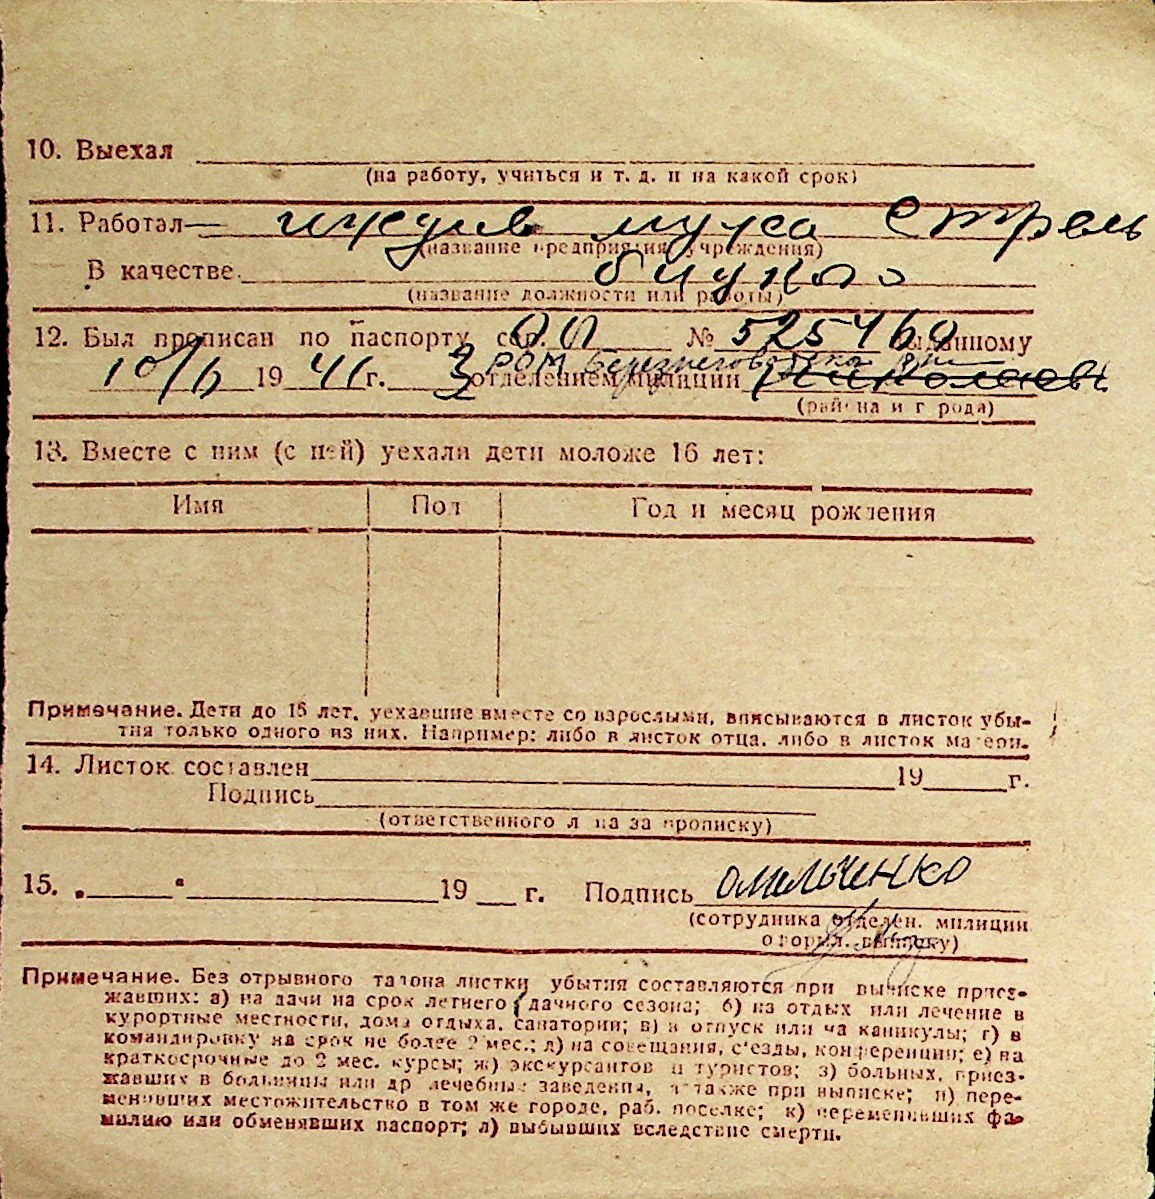 10. Выехал
(на работу, учиться и т. д. и на какой срок)
11. Работал— иждив мужа
(название предприятия, учреждения)
В качестве
(название должности или работы)
12. Был прописан по паспорту сер. № 525460 выданному
10/6 19 41 г. 3 РОМ отделением милиции Николаев
(района и города)
13. Вместе с ним (с ней) уехали дети моложе 16 лет:
Имя Пол Год и месяц рождения
Примечание. Дети до 15 лет, уехавшие вместе со взрослыми, вписываются в листок убы-
тия только одного из них. Например: либо в листок отца, либо в листок матери.
14. Листок составлен 19 г.
Подпись
(ответственного лица за прописку)
15. „ “ 19 г. Подпись Омельченко
(сотрудника отделен. милиции
оформл. выписку)
Примечание. Без отрывного талона листки убытия составляются при выписке приез-
жавших: а) на дачи на срок летнего дачного сезона; б) на отдых или лечение в
курортные местности, дома отдыха, санатории; в) в отпуск или на каникулы; г) в
командировку на срок не более 2 мес.; д) на совещания, с'езды, конференции; е) на
краткосрочные до 2 мес. курсы; ж) экскурсантов и туристов; з) больных, приез-
жавших в больницы или др лечебные заведения, а также при выписке; и) пере-
менивших местожительство в том же городе, раб. поселке; к) переменивших фа-
милию или обменявших паспорт; л) выбывших вследствие смерти.